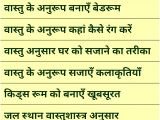 वास्तु के अनुरूप बनाएँ बेडरूम
वास्तु के अनुरूप कहां कैसे रंग करें
वास्तु अनुसार घर को सजाने का तरीका
वास्तु के अनुरूप सजाएँ कलाकृतियाँ
किड्स रूम को बनाएँ खूबसूरत
जल स्थान वास्तुशास्त्र अनुसार